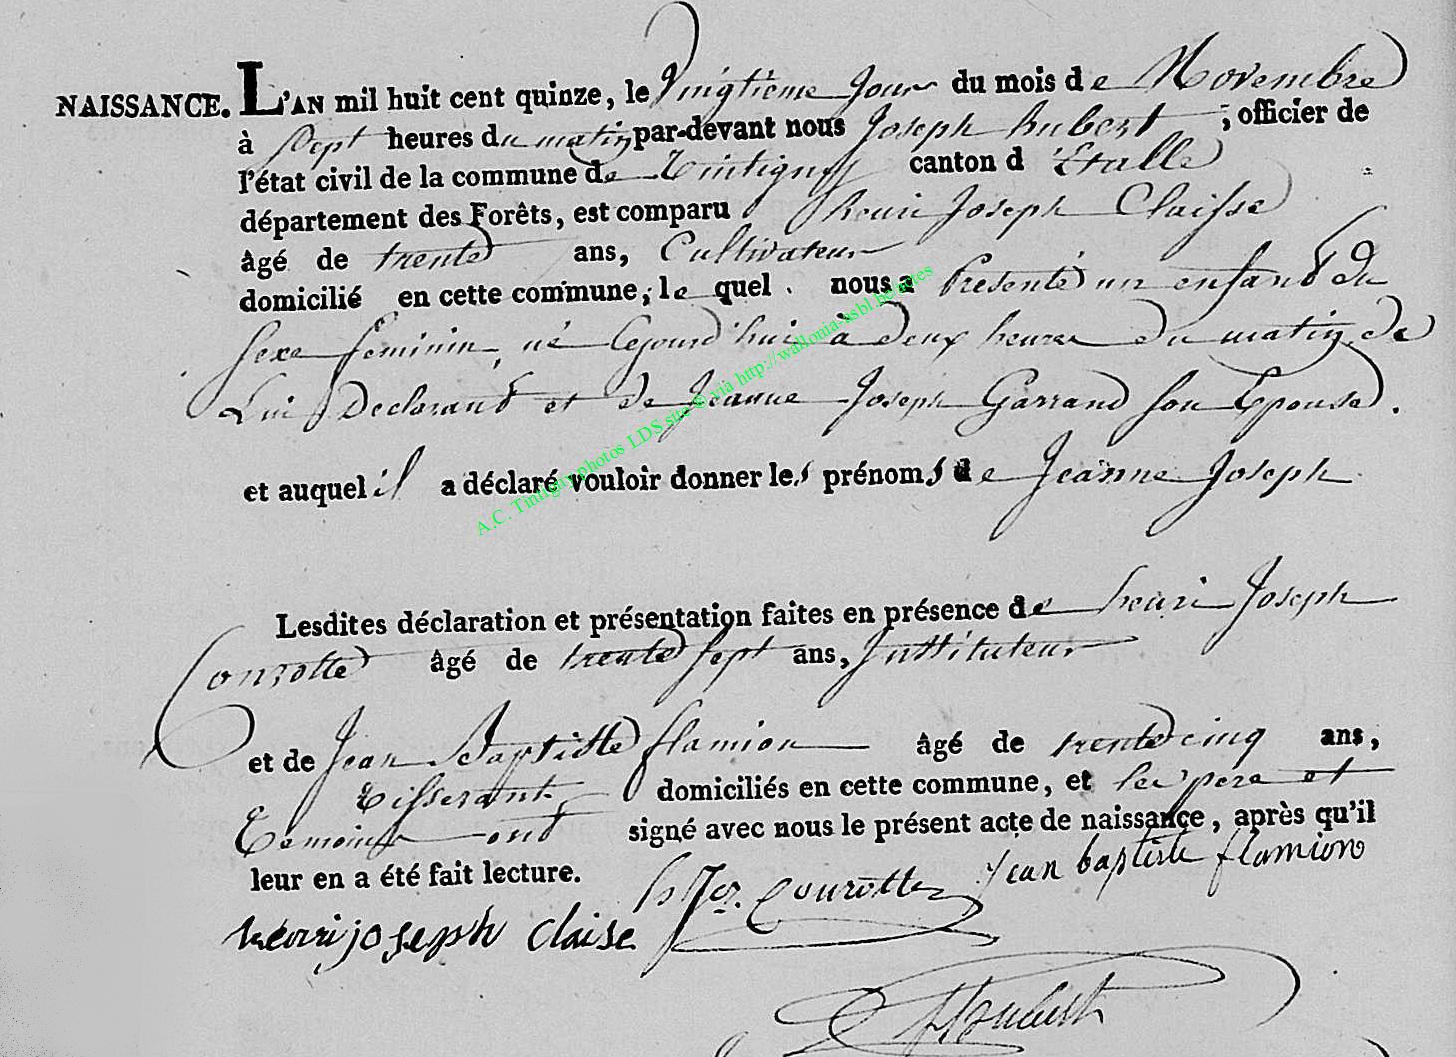 NAISSANCE. L'AN mil huit cent quinze, le Vingtieme Jour du mois de Novembre
à Sept heures du matin par-devant nous Joseph hubert ; officier de
l'état civil de la commune de Tintigny canton d'Etalle
département des Forêts, est comparu henri Joseph Claisse
âgé de trente ans, Cultivateur
domicilié en cette commune, le quel nous a Presenté un enfant du
sexe feminin, né Cejourd'hui à deux heures du matin, de
Lui Declarant et de Jeanne Joseph Garrand son Epouse.
et auquel il a déclaré vouloir donner les prénoms de Jeanne Joseph
Lesdites déclaration et présentation faites en présence de henri Joseph
Courotte âgé de trente sept ans, Instituteur
et de Jean Baptiste flamion âgé de trente cinq ans,
Tisserant domiciliés en cette commune, et les pere et
Temoins ont signé avec nous le présent acte de naissance, après qu'il
leur en a été fait lecture.
h Jos. Courotte Jean baptiste flamion
henri joseph Claise
Hubert
A.C. Tintigny photos LDS site © via http://wallonia-asbl.be/actes